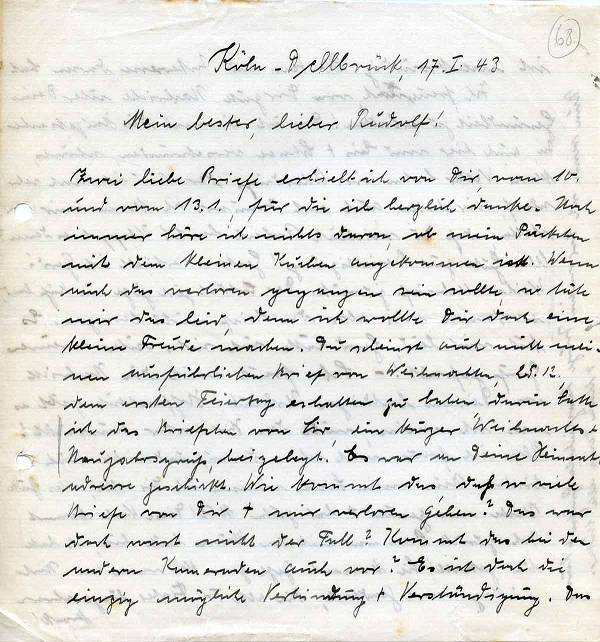 68
Köln-Dellbrück, 17.I.43.
Mein bester, lieber Rudolf!
Zwei liebe Briefe erhielt ich von Dir, vom 10.
und vom 13.1., für die ich herzlich danke. Noch
immer höre ich nichts davon, ob mein Päckchen
mit dem kleinen Kuchen angekommen ist. Wenn
auch das verloren gegangen sein sollte, so täte
mir das leid, denn ich wollte Dir doch eine
kleine Freude machen. Du scheinst auch nicht mei-
nen ausführlichen Brief von Weihnachten, 25.12,
dem ersten Feiertag erhalten zu haben, darin hatte
ich das Briefchen von, ein kurzer Weihnachts +
Neujahrsgruß, beigelegt. Es war an Deine Heimat-
adresse geschickt. Wie kommt das, daß so viele
Briefe von Dir + mir verloren gehen? Das war
doch sonst nicht der Fall? Kommt das bei den
andern Kameraden auch vor? Es ist doch die
einzig mögliche Verbindung + Verständigung. Das